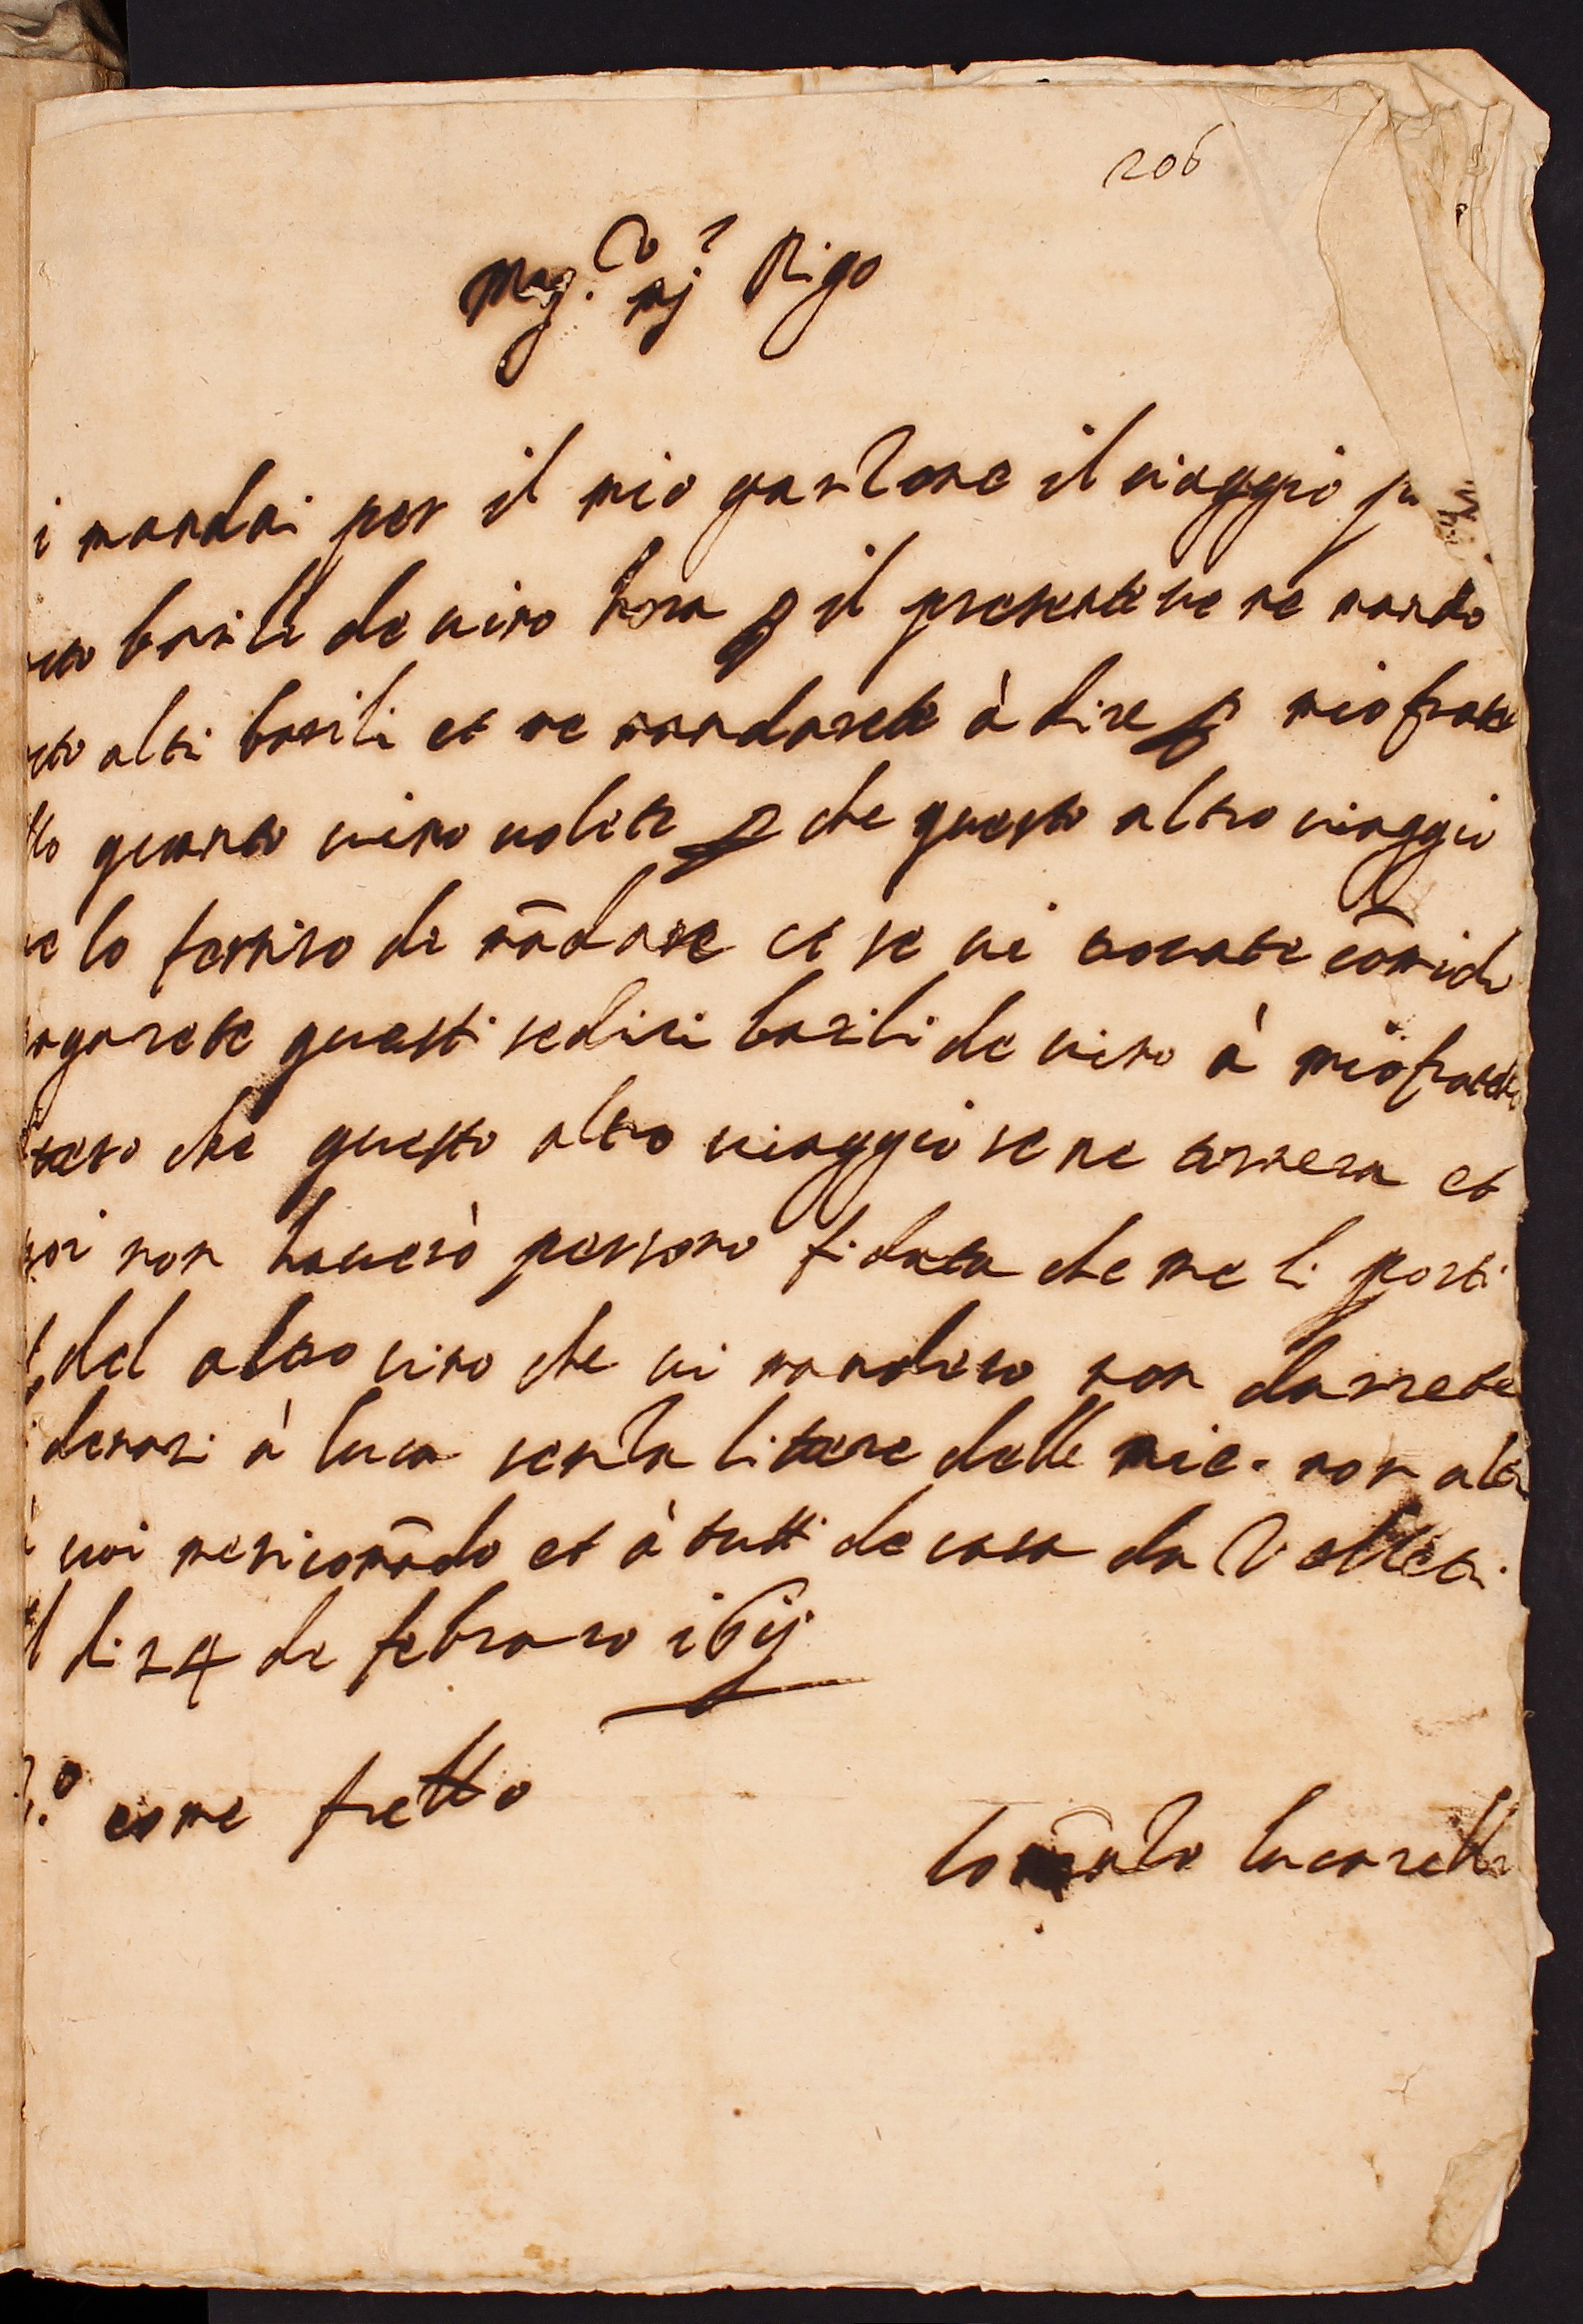 206
Mag.co mj Rigo
i mandai per il mio garzone il viaggio
barili de vino hora p il presente ve ne mando
altri barili et me mandarete à dire p mio frate
llo quanto vino volete p che questo altro viaggio
ve lo fernirò de mãdare et se vi trovate cõmido
pagarete questi sedici barili de vino à mio fratello
che questo altro viaggio se ne tornera et
poi non haverò persona fidata che me li porti
del altro vino che vi mandero non darrete
denari à luca senza littere delle mie. non altro
à voi mericomãdo et à tutti de casa da Velletri
il di 24 de febraro 1611
come fratello
lucarelli